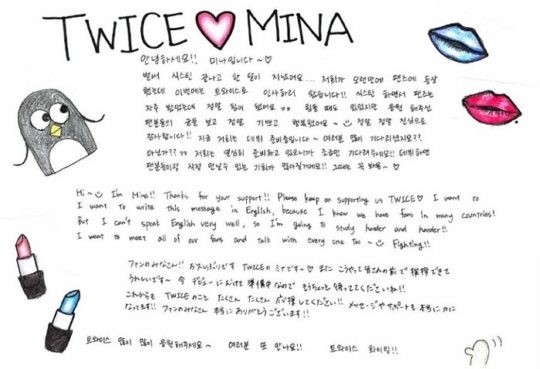 TWICE♡MINA
안녕하세요!! 미나입니다~♡
벌써 식스틴 끝나고 한 달이 지났어요... 저희가 오랜만에 팬즈에 등장
했는데 이번에는 트와이스로 인사하러 왔습니다!! 식스틴 하면서 팬즈를
자주 봤었는데 정말 힘이 됐어요 힘들 때도 있었지만 응원 해주신
팬분들의 글을 보고 정말 기쁘고 행복했어요~ 정말 정말 진심으로
감사합니다!! 지금 저희는 데뷔 준비중입니다~ 여러분 많이 기다리셨지요??
아닌가?? 저희는 열심히 준비하고 있으니까 조금만 기다려주세요!! 데뷔하면
팬분들이랑 직접 만날수 있는 기회가 많아질거에요!! 그때는 꼭 봐용~♡
Hi~ I'm Mina!! Thanks for your support!! Please keep on supporting us TWICE♡ I want to
I want to write this message in English, because I know we have fans in many countries!
But I can't speak English very well, so I'm going to study harder and harder!!
I want to meet all of our fans and talk with every one too~ Fighting!!
ファンのみなさん!! お久しぶりです TWICEのミナです~♡ またこうやって皆さんの前で挨拶できて
うれしいです~ 今 デビューにむけて準備中なので もうちょっと待っててくださいね!!
これからも TWICEのこと たくさん たくさん 応援してください!! メッセージやサポートも本当に力に
なってます!! ファンのみなさん 本当にありがとうございます!!
트와이스 많이 많이 응원해주세요~ 여러분 또 만나요!! 트와이스 화이팅!!